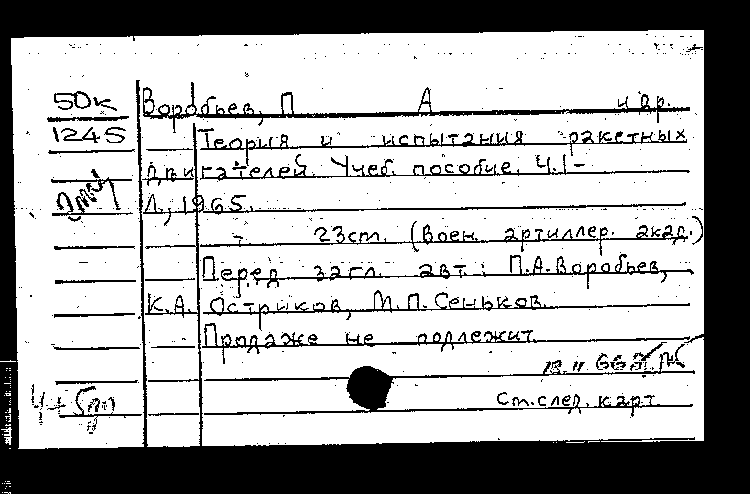 50к Воробьев, П А и др.
1245 Теория и испытания ракетных
двигателей. Учеб. пособие. Ч.1-
Л., 1965.
- 23см. (Воен. артиллер. акад.)
Перед загл. авт.: П.А.Воробьев,
К.А. Остриков, М.П.Сеньков.
Продаже не подлежит.
Ст.след. карт.